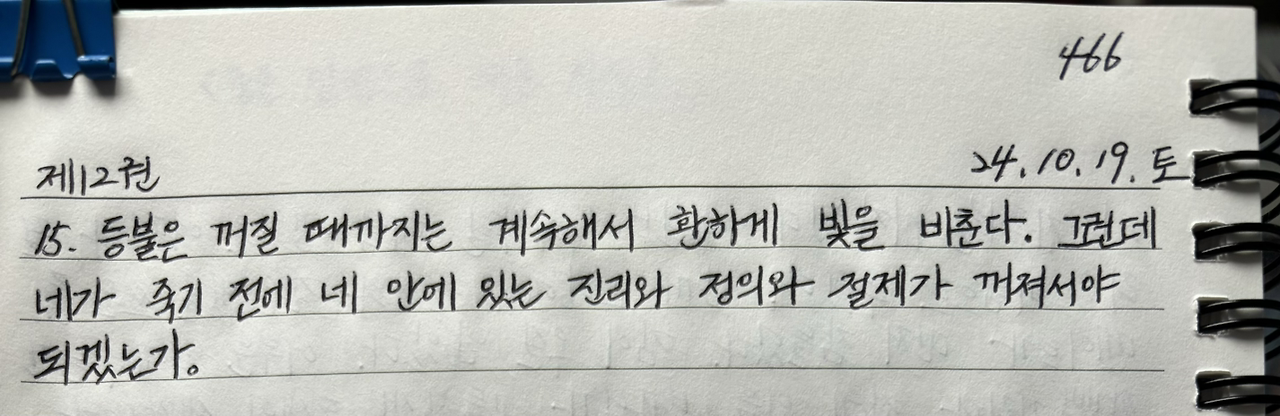 466
제12권 24.10.19.토
15. 등불은 꺼질 때까지는 계속해서 환하게 빛을 비춘다. 그런데
네가 죽기 전에 네 안에 있는 진리와 정의와 절제가 꺼져서야
되겠는가.